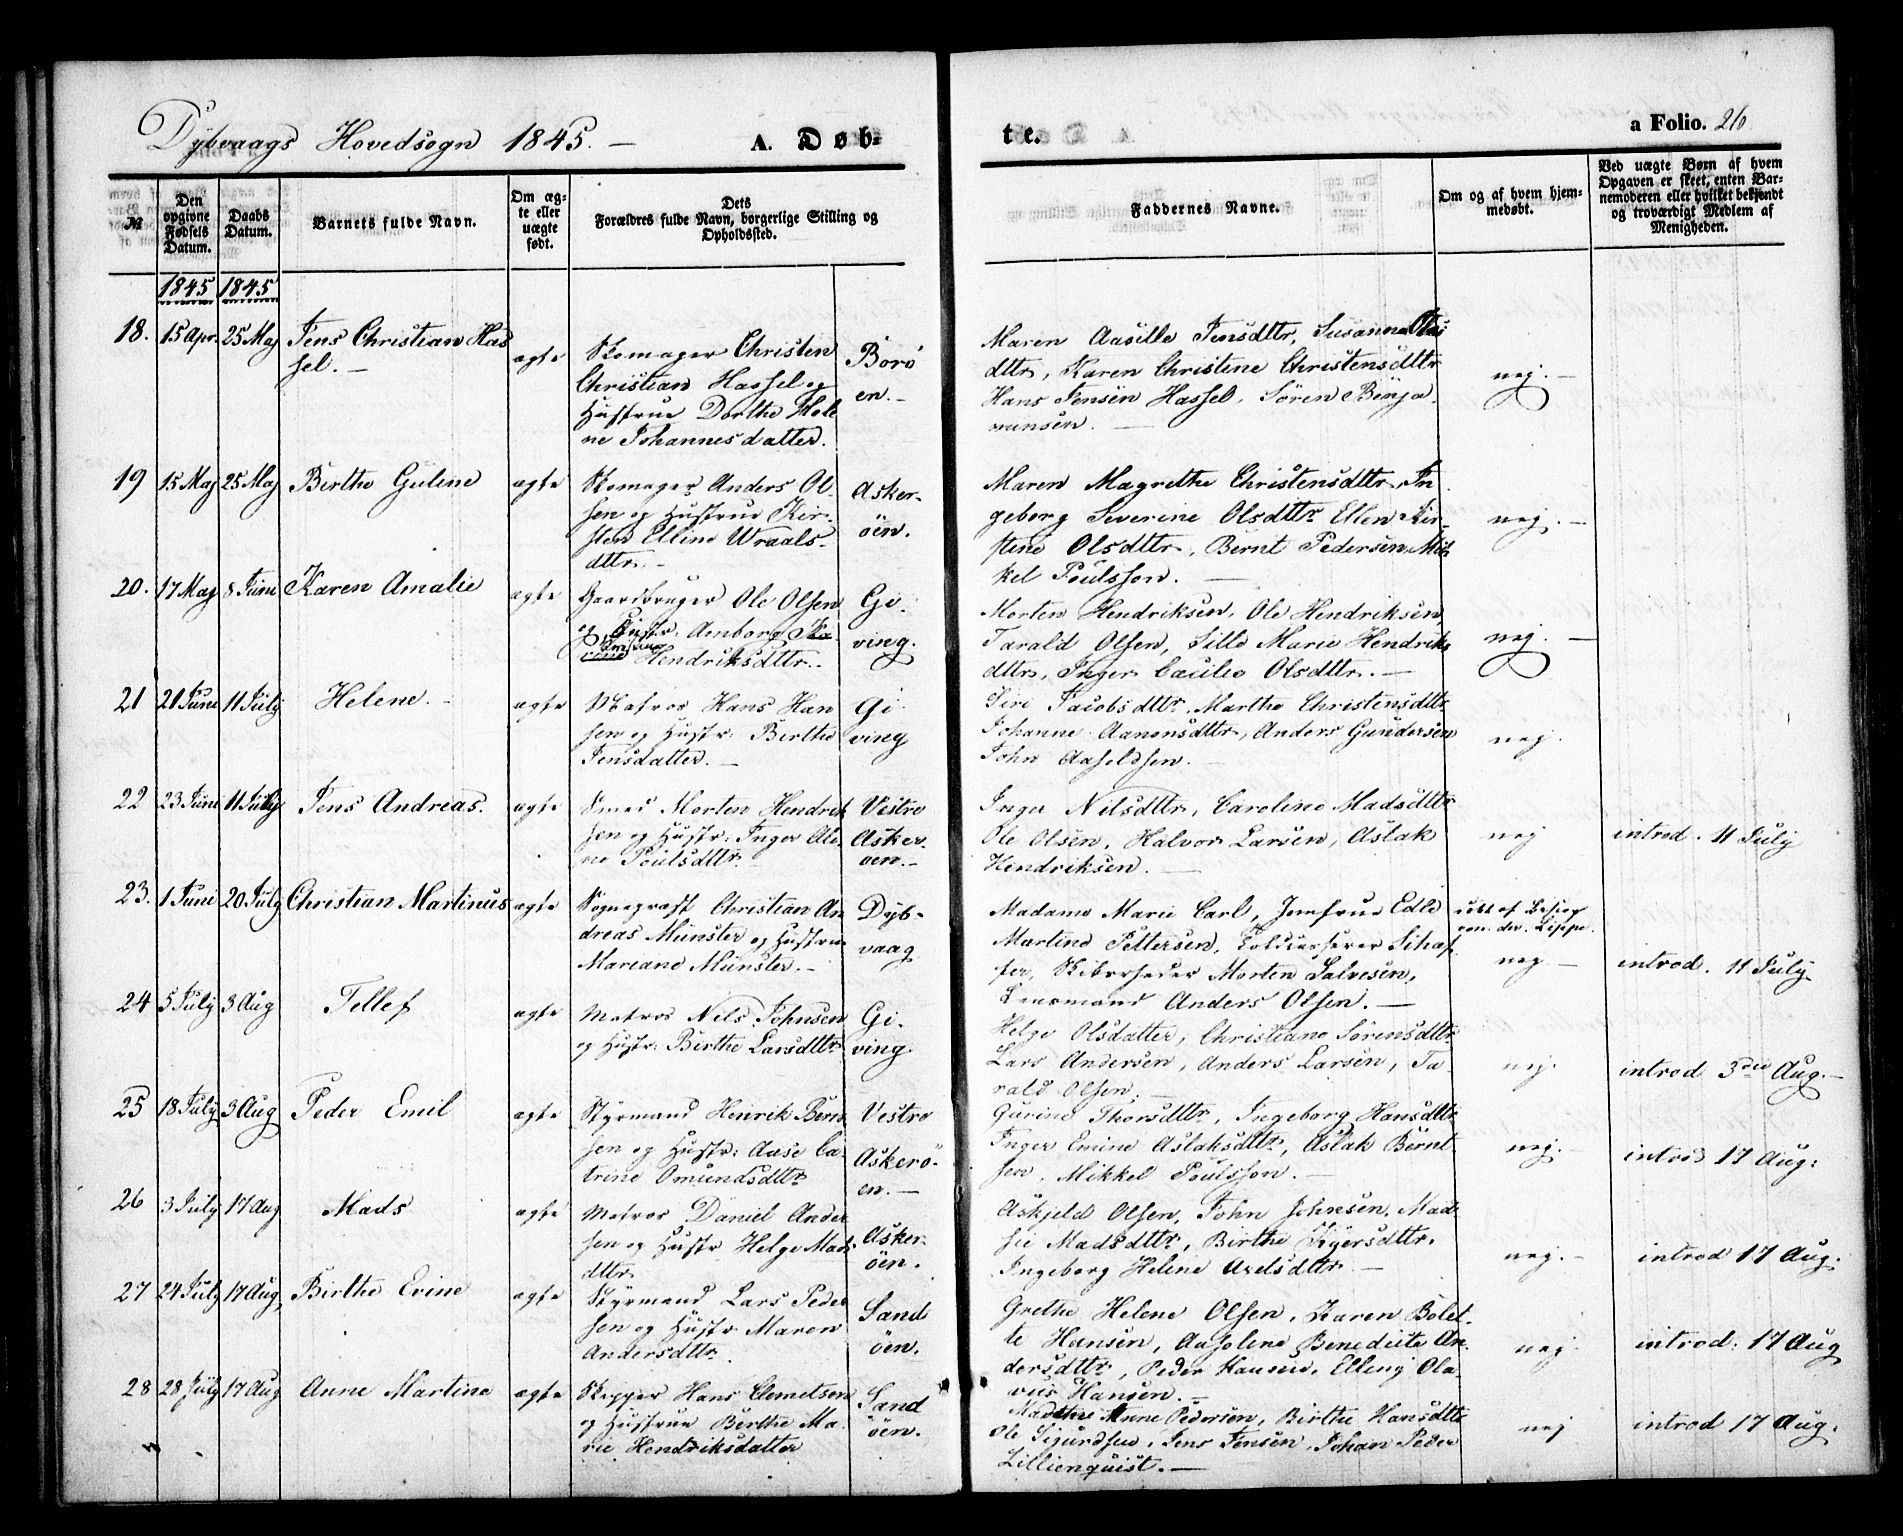 Dybvaags Hovedsogn 1845. — A. Døb-
te. a Folio. 26.
№ Den opgivne Fødsels Datum. Daabs Datum. Barnets fulde Navn. Om ægte eller uægte født. Dets Forældres fulde Navn, borgerlige Stilling og Opholdssted. Faddernes Navne. Om og af hvem hjemmedøbt. Ved uægte Børn af hvem Opgaven er skeet, enten Barnemoderen eller hvilket bekjendt og troværdigt Medlem af Menigheden.
1845 1845
18. 15 Apr. 25 Maj Jens Christian Has
sel. —
ægte
Skomager Christen
Christian Hassel og
Hustrue Dorthe Hele
ne Johannesdatter.
Borö
en. —
Maren Aasille Jensdttr, Susanne Olsdttr, Karen Christine Christensdttr
Hans Jensen Hassel, Sören Benja-
minsen. —
nej. —
19 15 Maj 25 Maj Birthe Guline ægte
Skomager Anders Ol-
sen og Hustrue Kir-
sten Elline Wraals-
dttr. —
Asker-
öen.
Maren Magrethe Christensdttr, In
geborg Severine Olsdttr Ellen Kir-
stine Olsdttr, Bernt Pedersen, Mik
kel Poulsson. —
nej. —
20. 17 Maj 8 Juni Karen Amalie ægte
Gaardbruger Ole Olsen
og Hustr: Amborg
Hendriksdttr.
Gi-
ving.
Morten Hendriksen, Ole Hendriksen,
Tarald Olsen, Sille Marie Hendriks
dttr, Inger Cæcilie Olsdttr. —
nej. —
21 21 Juni 11 July Helene. — ægte
Matros Hans Han
sen og Hustr: Birthe
Jensdatter. —
Gi-
ving
Siri Jacobsdttr, Marthe Christensdttr
Johanne Aanonsdttr, Anders Gundersen
John Aaseldsen. —
nej.
22 23 Juni 11 July Jens Andreas. ægte
Smed Morten Hendrik
sen og Hustr: Inger Ole
ne Poulsdttr.
Vestre
Asker-
öen. —
Inger Nilsdttr, Caroline Madsdttr
Ole Olsen, Halvor Larsen, Aslak
Hendriksen. —
nej
introd. 11 July
23. 1 Juni 20 July Christian Martinus ægte
Sognepræst Christian An
dreas Münster og Hustrue
Mariane Münster. —
Dyb-
vaag
Madame Marie Carl, Jomfrue Edle
Martine Pettersen, Toldcasserer Schaf
fer, Skibsrheder Morten Salvesen,
Lensmand Anders Olsen. —
nej —
introd. 11 July
24 5 July 3 Aug Tellef ægte
Matros Nils Johnsen
og Hustr: Birthe Larsdttr
Gi-
ving
Helge Olsdatter, Christiane Sörensdttr
Lars Andersen, Anders Larsen, Ta
rald Olsen. —
nej.
introd 3die Aug. —
25 18 July 3 Aug Peder Emil ægte
Styrmand Henrik Bern
sen og Hustr: Aase Ca
trine Omundsdttr
Vestre
Askerö-
en. —
Gurine Thorsdttr, Ingeborg Hansdttr
Inger Emine Aslaksdttr, Aslak Bernt
sen, Mikkel Poulsson. —
nej. —
introd 17 Aug:
26 3 July 17 Aug Mads ægte
Matros Daniel Ander
sen og Hustr Helge Mads
dttr
Asker-
öen.
Askjeld Olsen, John Johnsen, Mad-
sie Madsdttr, Birthe
Ingeborg Helene Axelsdttr —
nej. —
introd 17 Aug.
27 24 July 17 Aug Birthe Evine ægte
Styrmand Lars Peder
sen og Hustr Maren
Andersdttr.
Sand
öen.
Grethe Helene Olsen, Karen Bolet-
te Hansen, Aasolene Benedicte An-
dersdttr, Peder Hansen, Elleng Ola-
vus Hansen. —
nej.
introd: 17 Aug
28 28 July 17 Aug Anne Martine ægte
Skipper Hans Clemetsen
og Hustrue Berthe Ma-
rie Hendriksdatter
Sand
öen.
Anne Pedersen, Birthe Hansdttr
Ole Sigurdsen, Jens Jensen, Johan Peder
Lillienquist. —
nej
introd 17 Aug.